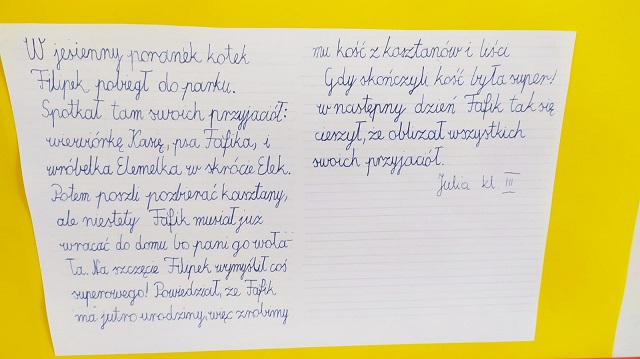 W jesienny poranek kotek
Filipek pobiegł do parku.
Spotkał tam swoich przyjaciół:
wiewiórkę Kasę, psa Fafika, i
wróbelka Elemelka w skrócie Elek.
Potem poszli pozbierać kasztany,
ale niestety Fafik musiał już
wracać do domu bo pani go woła-
ła. Na szczęcie Filipek wymyślił coś
superowego! Powiedział, że Fafik
ma jutro urodziny, więc zrobimy
mu kość z kasztanów i liści
Gdy skończyli kość była super!
w następny dzień Fafik tak się
cieszył, że oblizał wszystkich
swoich przyjaciół.
Julia kl. III